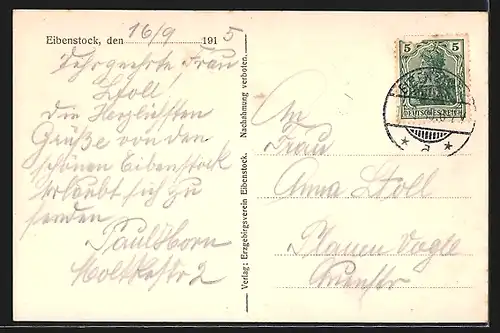 Eibenstock, den 16/9 1915
Sehr geehrte Frau
Stoll,
die Herzlichsten
Grüße von dem
schönen Eibenstock
erlaubt sich zu
senden
Paul
Moltkestr 2
Verlag: Erzgebirgsverein Eibenstock. Nachahmung verboten.
5 5
DEUTSCHES REICH
An
Frau
Anna Stoll
Plauen Vogtl